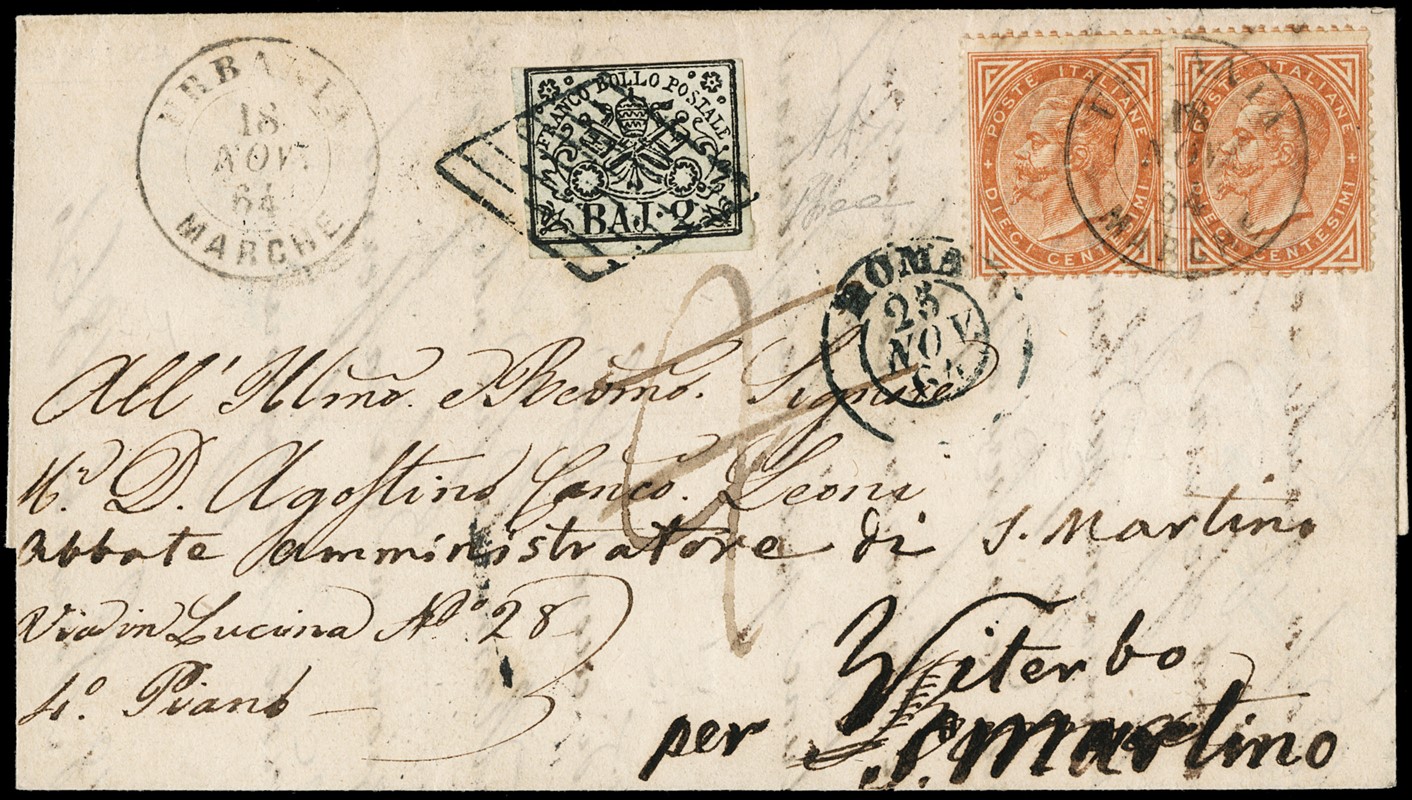 URBANIA
18
NOV.
64
MARCHE
FRANCO BOLLO POSTALE
BAJ. 2
POSTE ITALIANE
DIECI CENTESIMI
POSTE ITALIANE
DIECI CENTESIMI
URBANIA
18
NOV.
64
MARCHE
ROMA
25
NOV.
64
All' Illmo. e Recmo. Signore
D. Agostino Canco. Leoni
Abbate amministratore di S. Martino
Via in Lucina No. 28
4.o Piano
Viterbo
per S. Martino